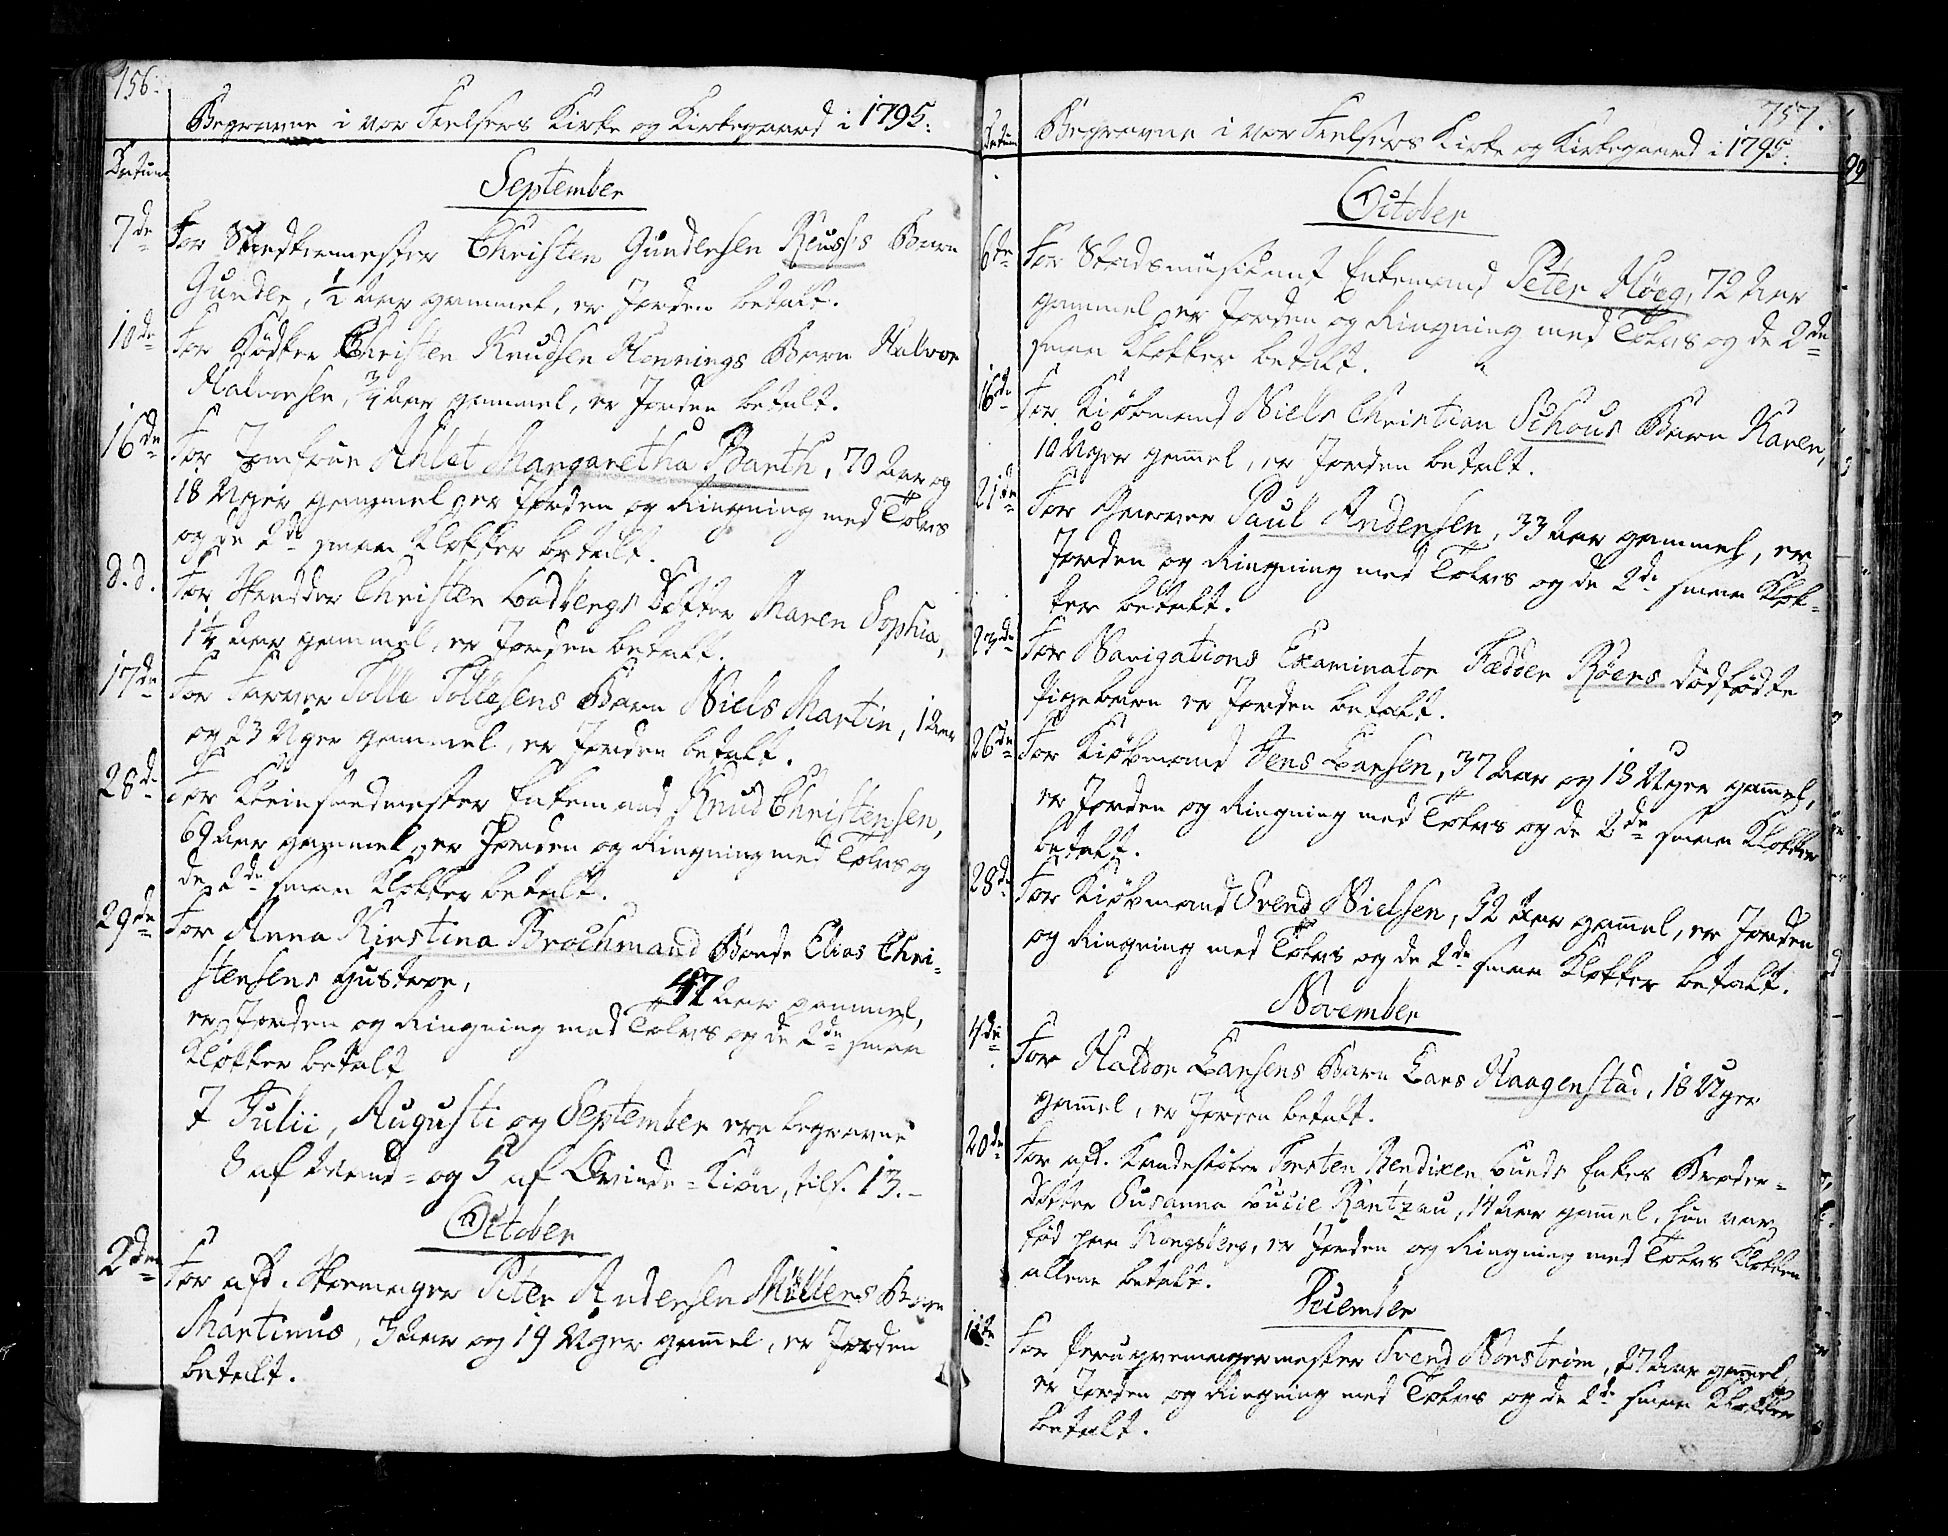 156.
Begravne i vor Frelsers Kirke og Kirkegaard i 1795.
Datum
September
7de For Snedkermester Christen Gundersen Reuss's Barn
Gunder, ½ Aar gammel, er Jorden betalt.
10de For Bødker Christen Knudsen Hennings Barn Halvor
Halvorsen, ¾ Aar gammel, er Jorden betalt.
16de For Jomfrue Ahlet Margaretha Barth, 70 Aar og
18 Uger gammel, er Jorden og Ringning med Tolvs
og de 2de smaa Klokker betalt.
d. d. For Skrædder Christen Ladbergs Dotter Maren Sophia,
1½ Aar gammel, er Jorden betalt.
17de For Farver Tolle Tollesens Barn Niels Martin, 1 Aar
og 23 Uger gammel, er Jorden betalt.
28de For Kleinsmedmester Enkemand Knud Christensen,
69 Aar gammel, er Jorden og Ringning med Tolvs og
de 2de smaa Klokker betalt.
29de For Anna Kirstina Brochmand Bonde Elias Chri-
stensens Hustroe, 47 Aar gammel,
er Jorden og Ringning med Tolvs og de 2de smaa
Klokker betalt
I Julii, Augusti og September ere begravne
8 af Mand- og 5 af Qvinde-Kiøn, tils. 13.-
October
2den For afd. Skomager Peter Andersen Müllers Barn
Martinus, 3 Aar og 19 Uger gamel, er Jorden
betalt.
757.
Datum
Begravne i vor Frelsers Kirke og Kirkegaard i 1795.
October
6te For Stadsmusicant Enkemand Peter Høeg, 72 Aar
gammel, er Jorden og Ringning med Tolvs og de 2de
smaa Klokker betalt.
16de For Kiøbmand Niels Christian Schous Barn Karen,
10 Uger gamel, er Jorden betalt.
21de For Garver Paul Andersen, 33 Aar gammel, er
Jorden og Ringning med Tolvs og de 2de smaa Klok-
ker betalt.
23de For Navigations Examinator Fedder Røers dødfødte
Pigebarn er Jorden betalt.
26de For Kiøbmand Jens Larsen, 37 Aar og 18 Uger gamel,
er Jorden og Ringning med Tolvs og de 2de smaa Klokker
betalt.
28de For Kiøbmand Svend Nielsen, 52 Aar gamel, er Jorden
og Ringning med Tolvs og de 2de smaa Klokker betalt.
November
4de For Haldor Larsens Barn Lars Haagenstad, 18 Uger
gamel, er Jorden betalt.
20de For afd. Kandestøber Torsten Bendixen Lunds Enkes Broder-
dotter Susanna Lucie Rantzau, 14 Aar gamel, hun var
fød paa Kongsberg, er Jorden og Ringning med Tolvs Klokken
allene betalt.
December
11te For Peruqvemagermester Svend Norstrøm, 27 Aar gamel,
er Jorden og Ringning med Tolvs og de 2de smaa Klokker
betalt.